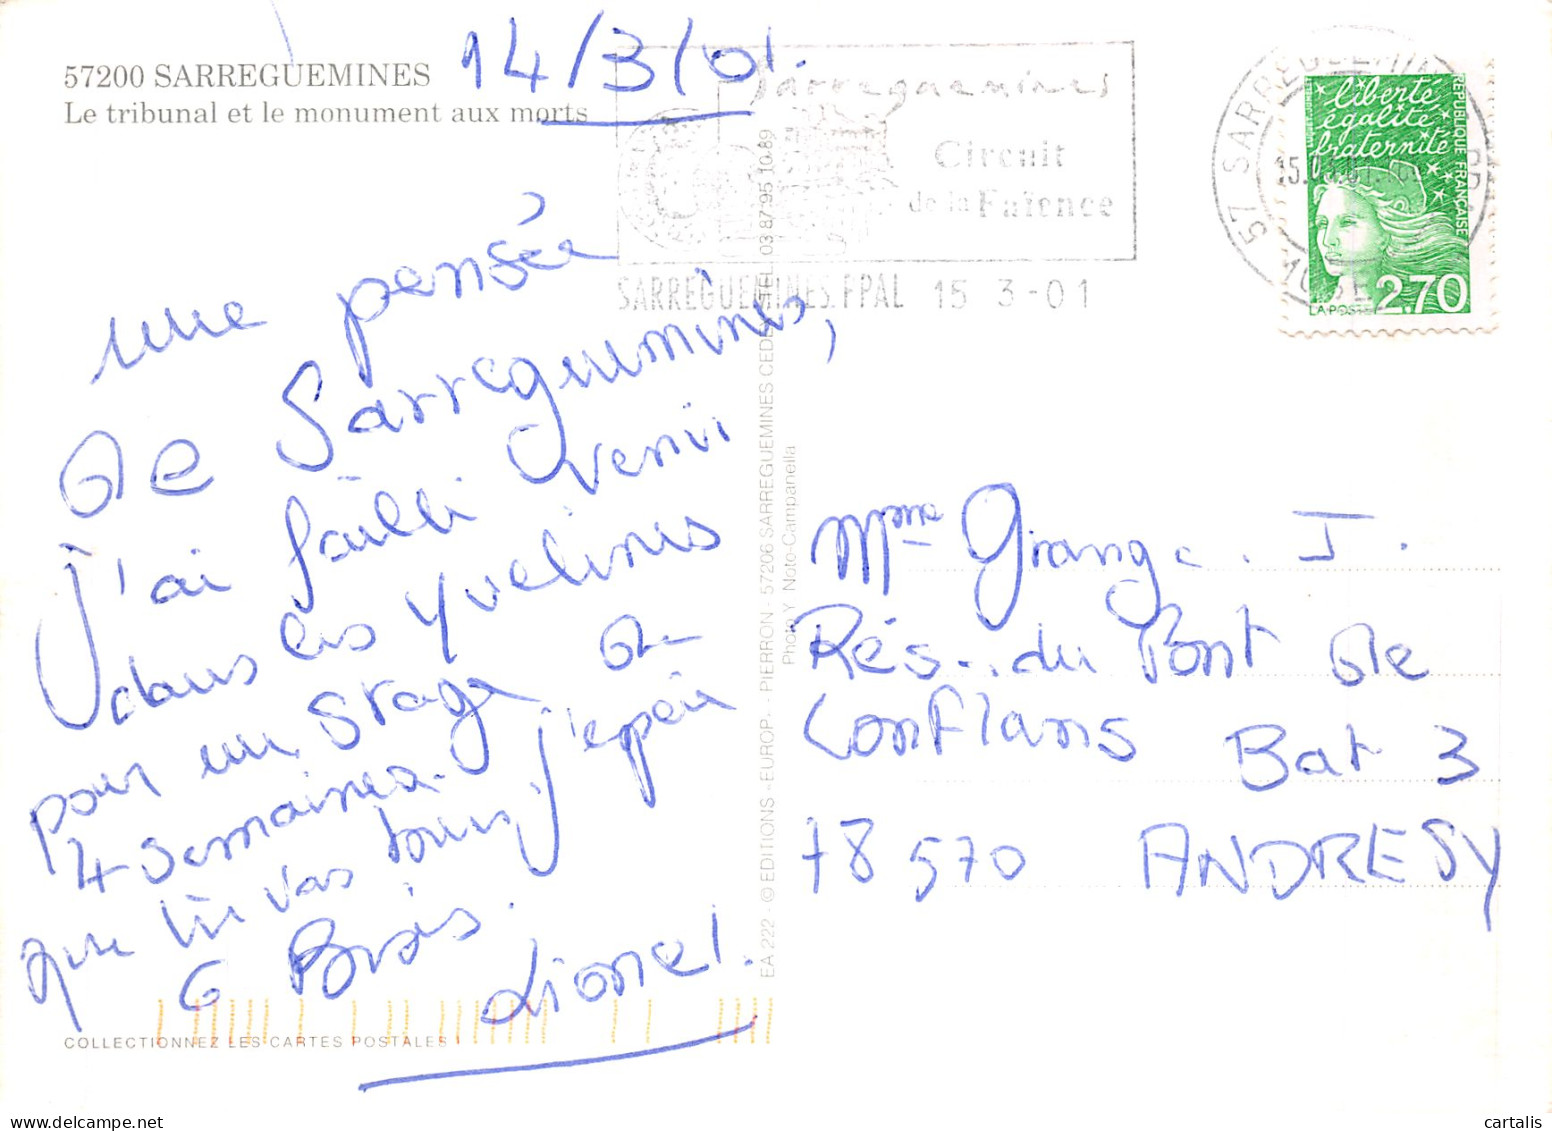 57200 SARREGUEMINES
Le tribunal et le monument aux morts
14/3/01.
Sarreguemines
Circuit
de la Faïence
SARREGUEMINES.FPAL 15 3-01
57 SARREGUEMIN
liberté
égalité
fraternité
REPUBLIQUE FRANÇAISE
LA POSTE 2,70
une pensée
de Sarreguemines,
J'ai failli venir
dans les Yvelines
pour un stage de
4 semaines. j'espère
que tu vas bien,
G Bises.
Lionel.
Mme Grange. J.
Rés. du Pont de
Conflans Bat 3
78 570 ANDRESY
EA 222 - © EDITIONS - EUROP. - PIERRON - 57206 SARREGUEMINES CEDEX TEL. 03 87 95 10 89
Photo Y. Noto-Campanella
COLLECTIONNEZ LES CARTES POSTALES !
cartalis